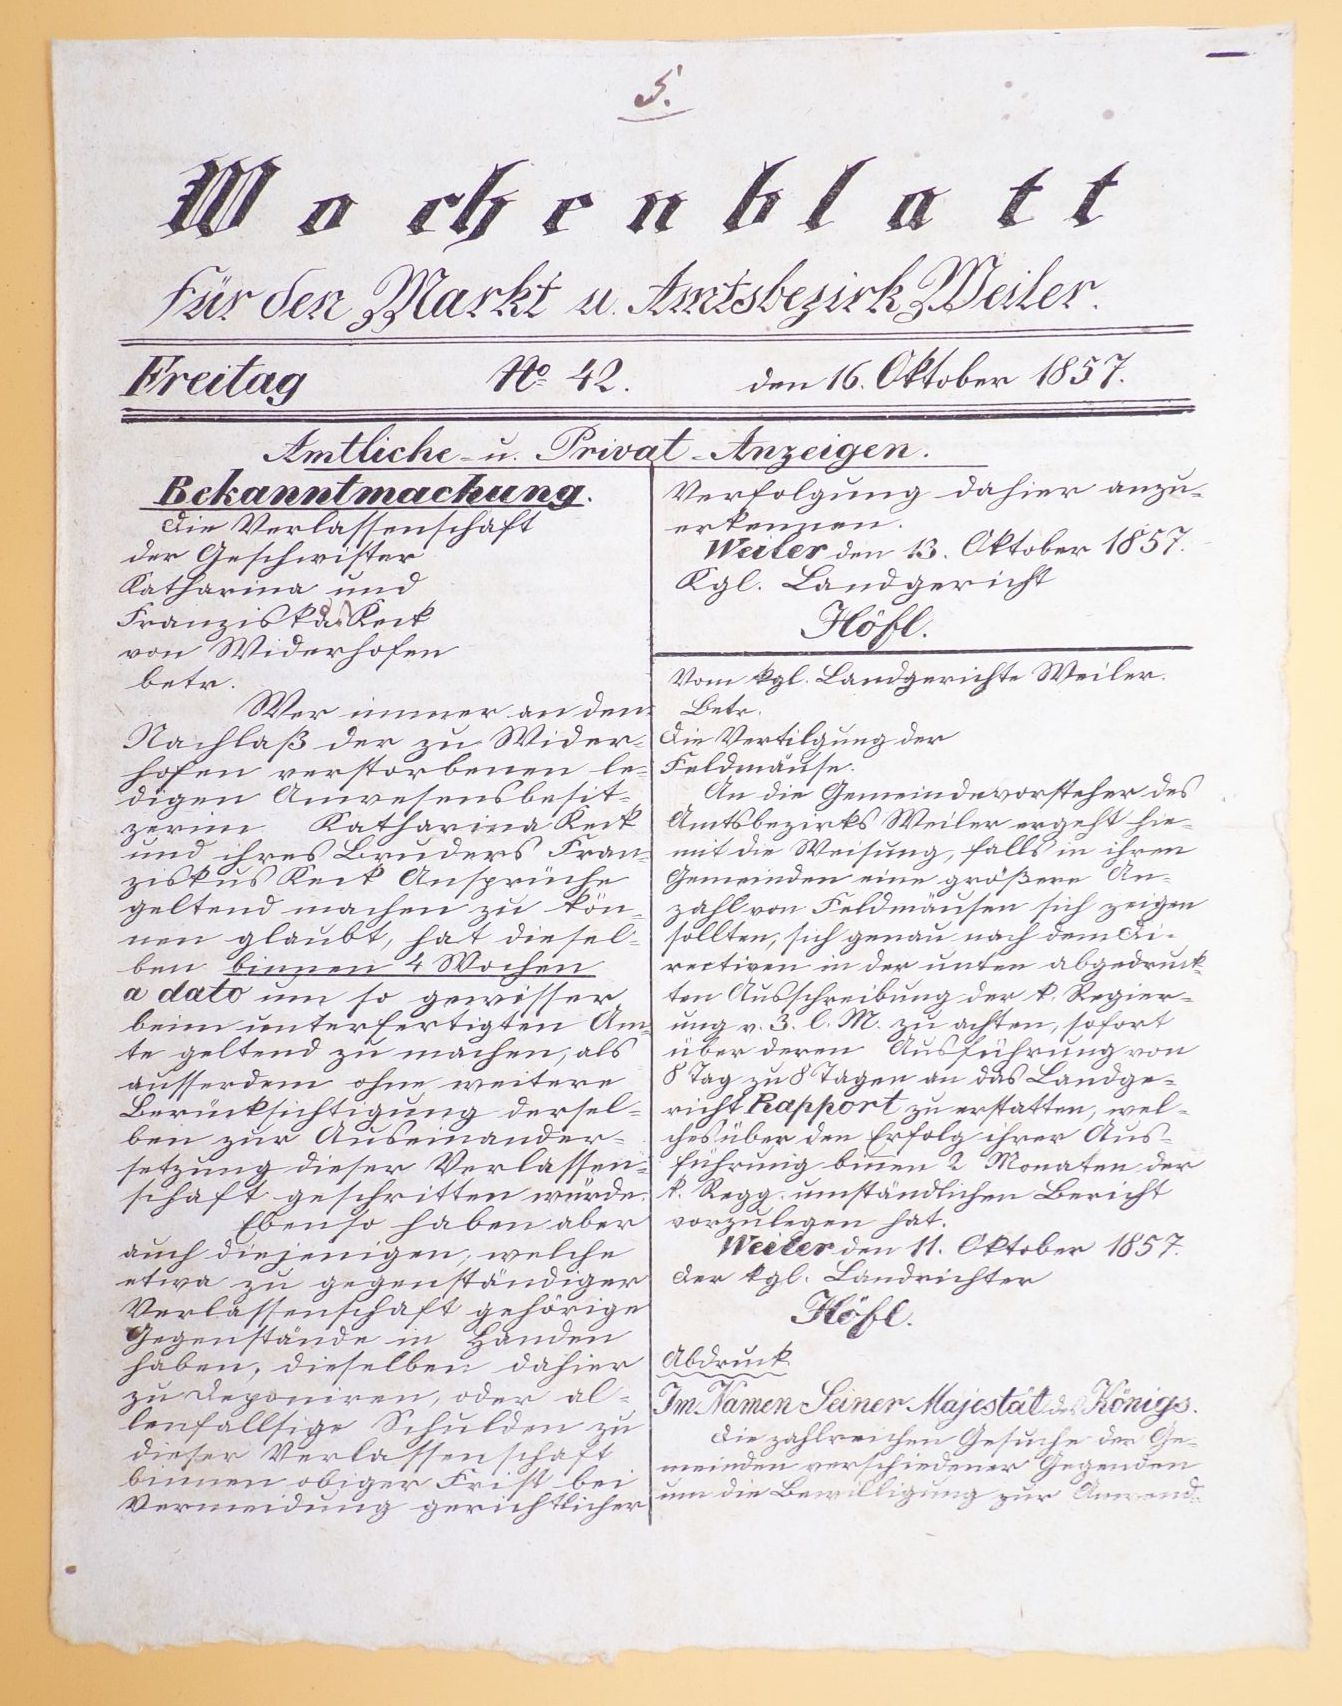 5.
Wochenblatt
für den Markt u. Amtsbezirk Weiler.
Freitag No 42. den 16. Oktober 1857.
Amtliche- u. Privat-Anzeigen.
Bekanntmachung.
Die Verlassenschaft
der Geschwister
Katharina und
Franziska Keck
von Widerhofen
betr.
Wer immer an den
Nachlaß der zu Wider-
hofen verstorbenen le-
digen Anwesensbesit-
zerinn Katharina Keck
und ihres Bruders Fran-
ziskus Keck Ansprüche
geltend machen zu kön-
nen glaubt, hat diesel-
ben binnen 4 Wochen
a dato um so gewisser
beim unterfertigten Am-
te geltend zu machen, als
ausserdem ohne weitere
Berücksichtigung dersel-
ben zur Auseinander-
setzung dieser Verlassen-
schaft geschritten würde.
Ebenso haben aber
auch diejenigen, welche
etwa zu gegenständiger
Verlassenschaft gehörige
Gegenstände in Handen
haben, dieselben dahier
zu deponiren, oder al-
lenfallsige Schulden zu
dieser Verlassenschaft
binnen obiger Frist bei
Vermeidung gerichtlicher
Verfolgung dahier anzu-
erkennen.
Weiler den 13. Oktober 1857.
Kgl. Landgericht
Höfl.
Vom kgl. Landgerichte Weiler.
Betr.
Die Vertilgung der
Feldmäuse.
An die Gemeindevorsteher des
Amtsbezirks Weiler ergeht hie-
mit die Weisung, falls in ihren
Gemeinden eine größere An-
zahl von Feldmäusen sich zeigen
sollten, sich genau nach dem Di-
rectiven in der unten abgedruck-
ten Ausschreibung der k. Regier-
ung v. 3. l. M. zu achten, sofort
über deren Ausführung von
8 Tag zu 8 Tagen an das Landge-
richt Rapport zu erstatten, wel-
ches über den Erfolg ihrer Aus-
führung binnen 2 Monaten der
k. Regg. umständlichen Bericht
vorzulegen hat.
Weiler den 11. Oktober 1857.
Der kgl. Landrichter
Höfl.
Abdruck
Im Namen Seiner Majestät des Königs.
Die zahlreichen Gesuche der Ge-
meinden verschiedener Gegenden
um die Bewilligung zur Anwend-